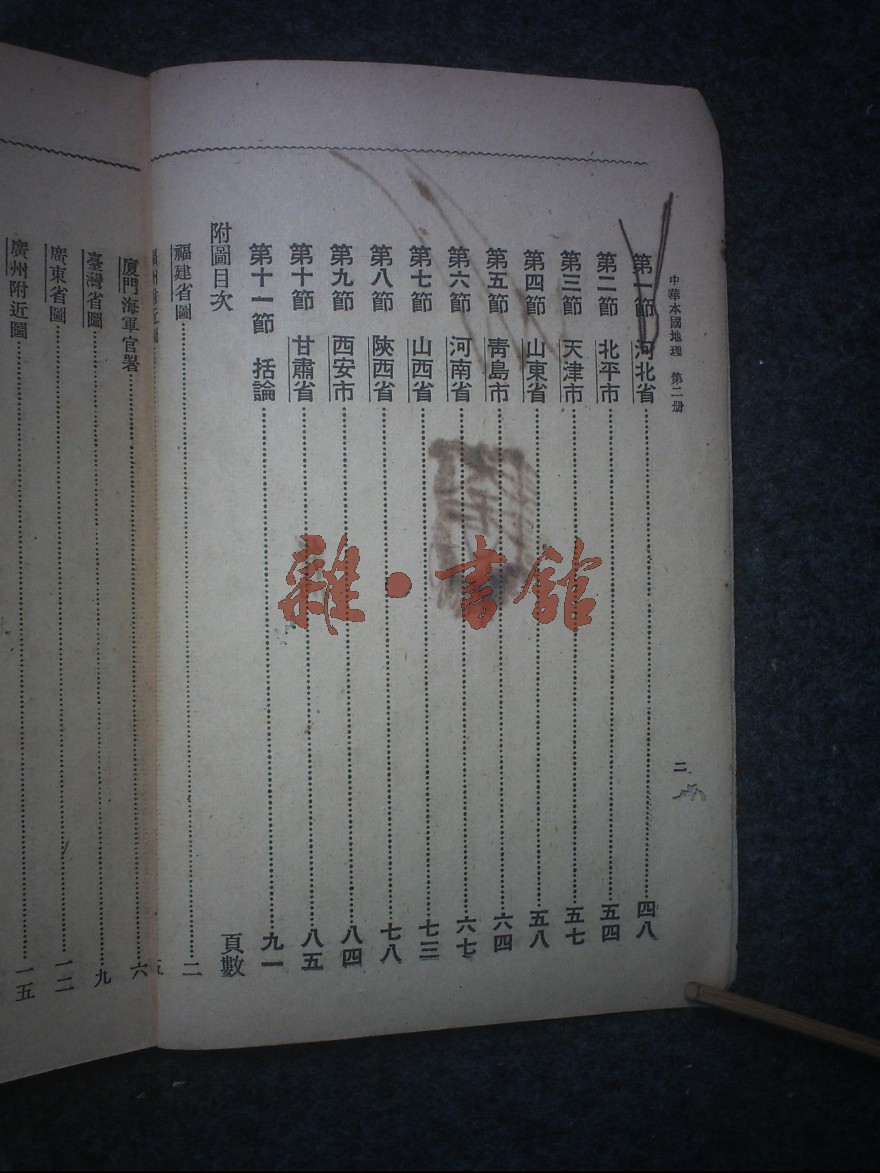 中華本國地理 第二册
二
第一節 河北省 四八
第二節 北平市 五四
第三節 天津市 五七
第四節 山東省 五八
第五節 靑島市 六四
第六節 河南省 六七
第七節 山西省 七三
第八節 陝西省 七八
第九節 西安市 八四
第十節 甘肅省 八五
第十一節 括論 九一
附圖目次 頁數
福建省圖 二
附近圖 五
廈門海軍官署 六
臺灣省圖 九
廣東省圖 一二
廣州附近圖 一五
雜·書館